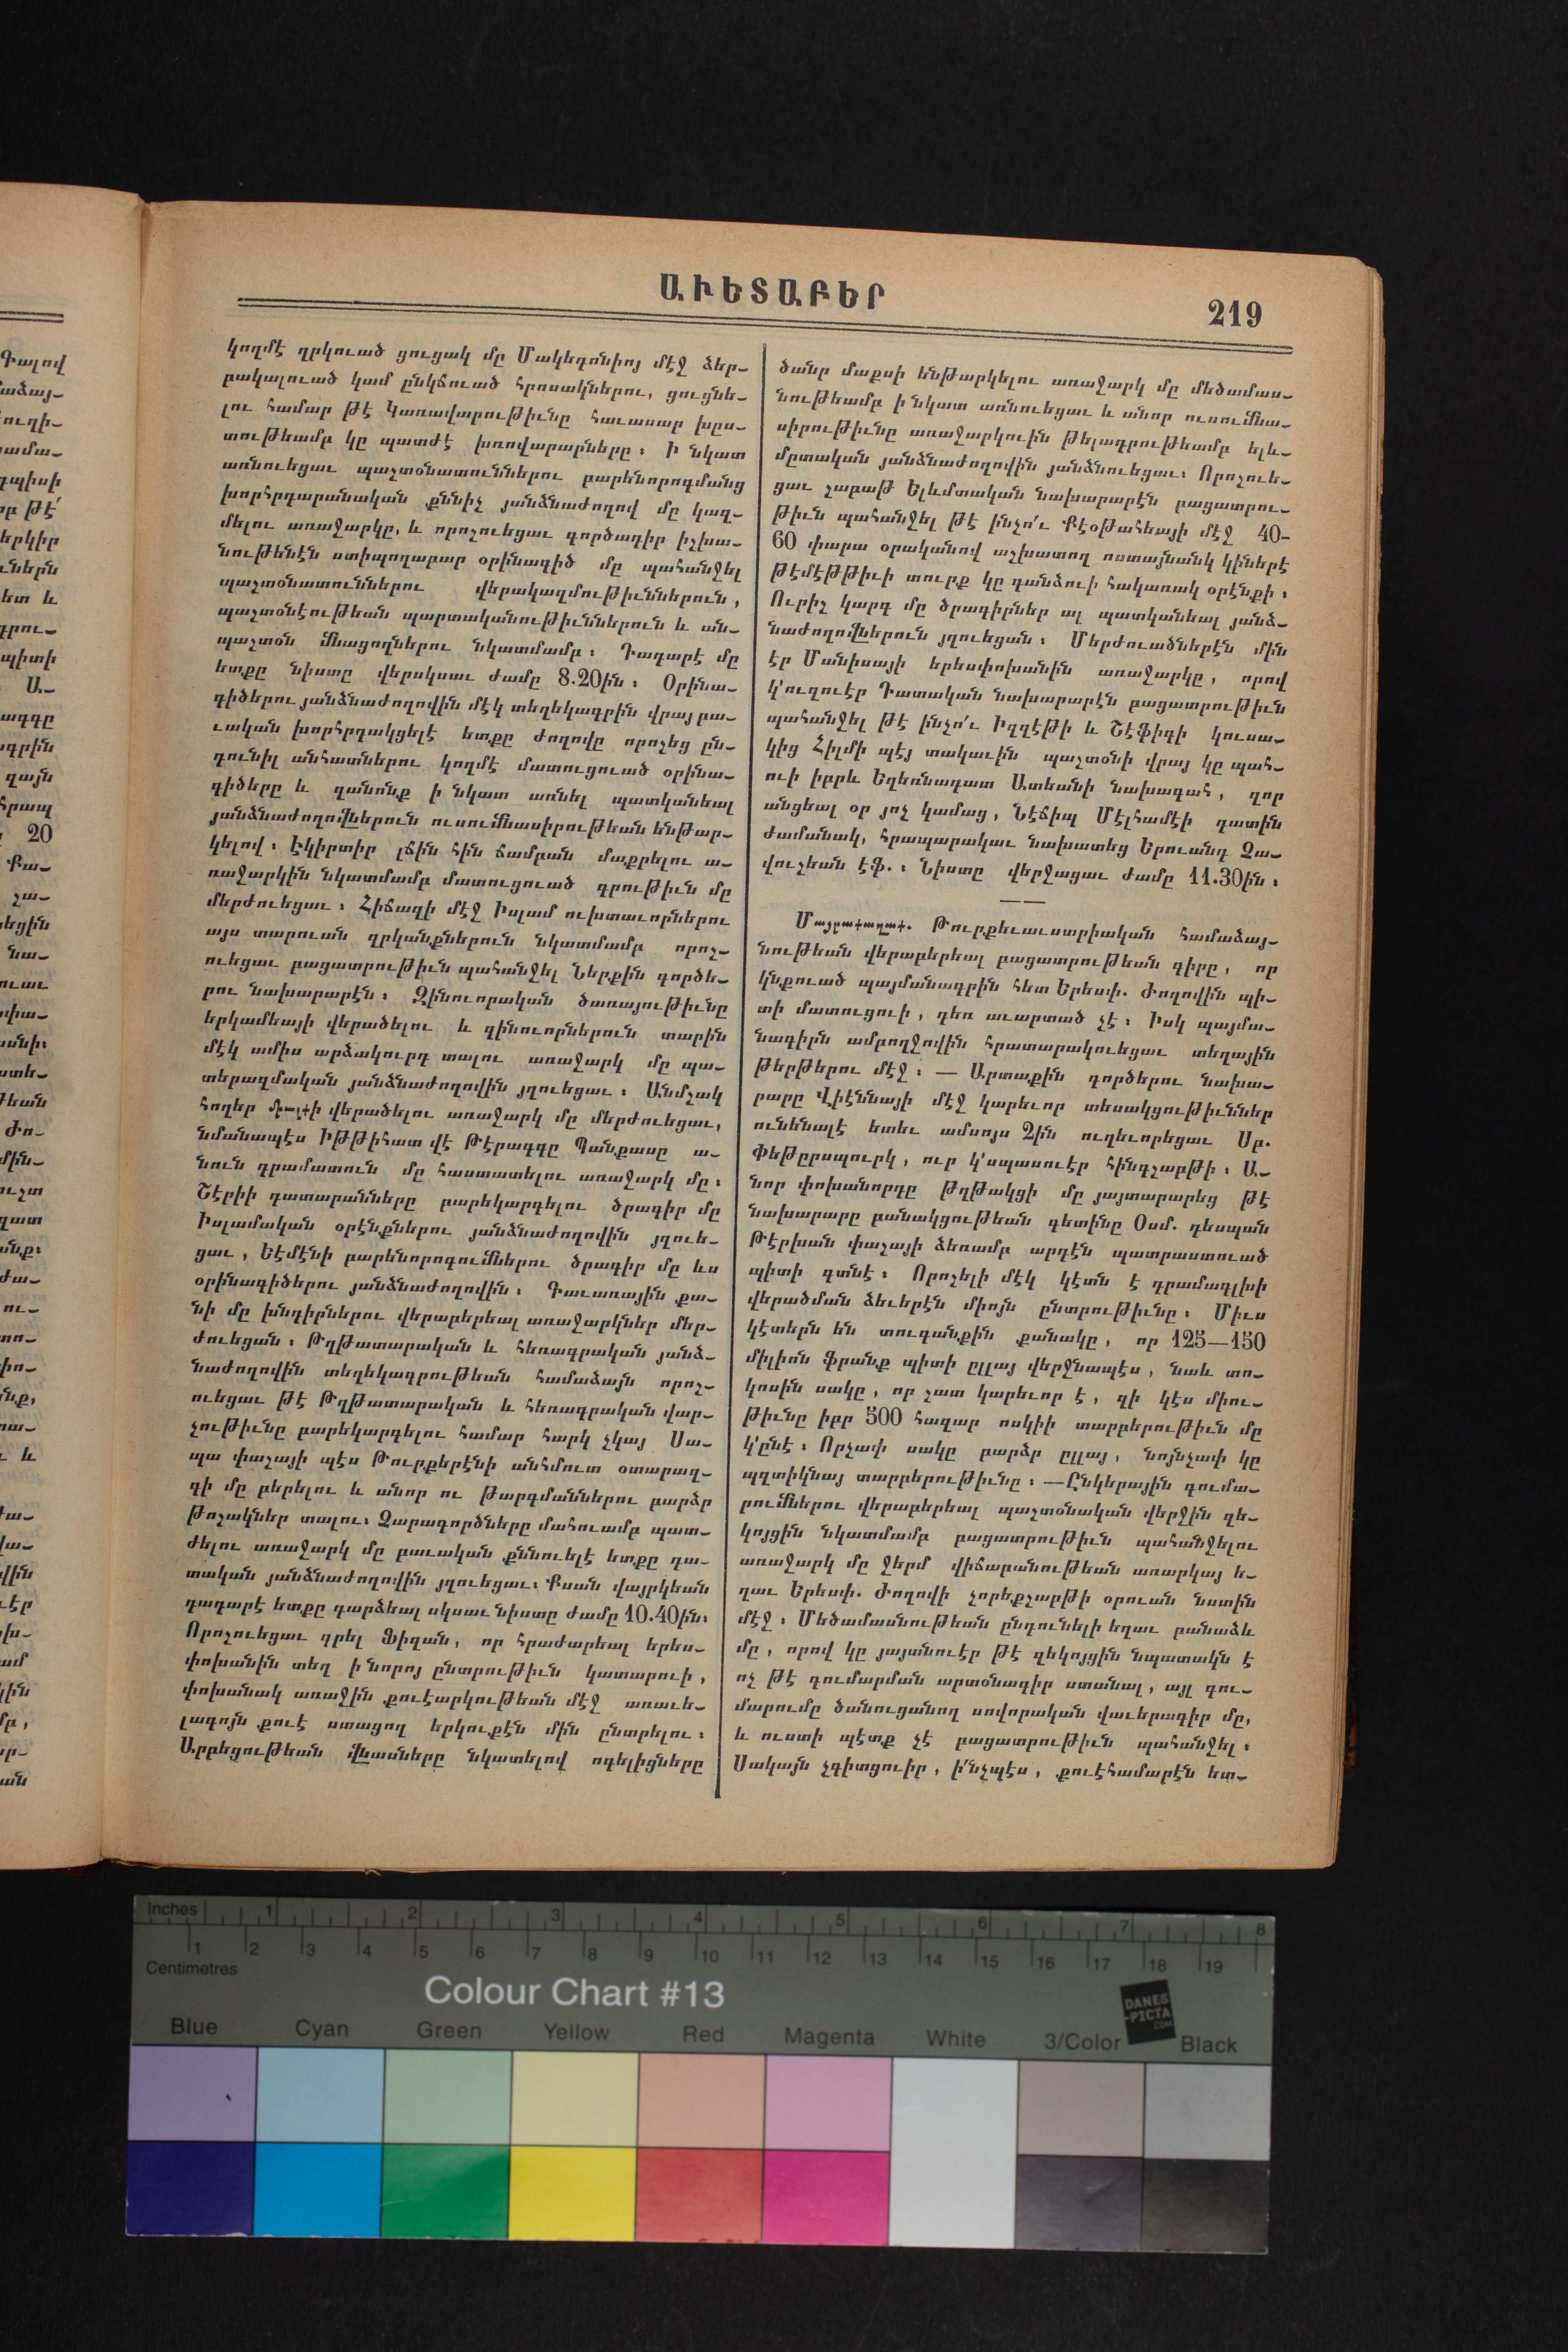 ԱՒԵՏԱԲԵՐ
219
կողմէ ղրկուած ցուցակ մը Մակեդոնիոյ մէջ ձեր-
բակալուած կամ ընկճուած հրոսակներու, ցուցնե-
լու համար թէ Կառավարութիւնը հաւասար խըս-
տութեամբ կը պատժէ խռովարարները։ Ի նկատ
առնուեցաւ պաշտօնատուններու բարենորոգմանց
խորհրդարանական քննիչ յանձնաժողով մը կազ-
մելու առաջարկը, և որոշուեցաւ գործադիր իշխա-
նութենէն ստիպողաբար օրինագիծ մը պահանջել
պաշտօնատուններու վերակազմութիւններուն,
պաշտօնէութեան պարտականութիւններուն և ան-
պաշտօն մնացողներու նկատմամբ։ Դադարէ մը
ետքը նիստը վերսկսաւ ժամը 8.20ին։ Օրինա-
գիծերու յանձնաժողովին մէկ տեղեկագրին վրայ բա-
ւական խորհրդակցելէ ետքը ժողովը որոշեց ըն-
դունիլ անհատներու կողմէ մատուցուած օրինա-
գիծերը և զանոնք ի նկատ առնել պատկանեալ
յանձնաժողովներուն ուսումնասիրութեան ենթար-
կելով։ Էկիրտիր լճին հին ճամբան մաքրելու ա-
ռաջարկին նկատմամբ մատուցուած գրութիւն մը
մերժուեցաւ։ Հիճազի մէջ Իսլամ ուխտաւորներու
այս տարուան զրկանքներուն նկատմամբ որոշ-
ուեցաւ բացատրութիւն պահանջել Ներքին գործե-
րու նախարարէն։ Զինուորական ծառայութիւնը
երկամեայի վերածելու և զինուորներուն տարին
մէկ ամիս արձակուրդ տալու առաջարկ մը պա-
տերազմական յանձնաժողովին յղուեցաւ։ Անմշակ
հողեր ի վերածելու առաջարկ մը մերժուեցաւ,
նմանապէս Իթթիհատ վէ Թէրագգը Պանքասը ա-
նուն դրամատուն մը հաստատելու առաջարկ մը։
Շէրիի դատարանները բարեկարգելու ծրագիր մը
Իսլամական օրէնքներու յանձնաժողովին յղուե-
ցաւ, Եէմէնի բարենորոգումներու ծրագիր մը ևս
օրինագիծերու յանձնաժողովին։ Գաւառային քա-
նի մը խնդիրներու վերաբերեալ առաջարկներ մեր-
ժուեցան։ Թղթատարական և հեռագրական յանձ-
նաժողովին տեղեկագրութեան համաձայն որոշ-
ուեցաւ թէ Թղթատարական և հեռագրական վար-
չութիւնը բարեկարգելու համար հարկ չկայ Սա-
պա փաշայի պէս Թուրքերէնի անհմուտ օտարազ-
գի մը բերելու և անոր ու թարգմաններու բարձր
թոշակներ տալու։ Չարագործները մահուամբ պատ-
ժելու առաջարկ մը բաւական քննուելէ ետքը դա-
տական յանձնաժողովին յղուեցաւ։ Քսան վայրկեան
դադարէ ետքը դարձեալ սկսաւ նիստը ժամը 10.40ին։
Որոշուեցաւ գրել Ֆիզան, որ հրաժարեալ երես-
փոխանին տեղ ի նորոյ ընտրութիւն կատարուի,
փոխանակ առաջին քուէարկութեան մէջ առաւե-
լագոյն քուէ ստացող երկուքէն մին ընտրելու։
Արբեցութեան վնասները նկատելով ոգելիցները
ծանր մաքսի ենթարկելու առաջարկ մը մեծամաս-
նութեամբ ի նկատ առնուեցաւ և անոր ուսումնա-
սիրութիւնը առաջարկուին թելադրութեամբ ելև-
մըտական յանձնաժողովին յանձնուեցաւ։ Որոշուե-
ցաւ շաբաթ Ելևմտական նախարարէն բացատրու-
թիւն պահանջել թէ ինչո՛ւ Քէօթահեայի մէջ 40-
60 փարա օրականով աշխատող ոստայնանկ կիներէ
թէմէթթիւի տուրք կը գանձուի հակառակ օրէնքի։
Ուրիշ կարգ մը ծրագիրներ ալ պատկանեալ յանձ-
նաժողովներուն յղուեցան։ Մերժուածներէն մին
էր Մանիսայի երեսփոխանին առաջարկը, որով
կ'ուզուէր Դատական նախարարէն բացատրութիւն
պահանջել թէ ինչո՛ւ Իզզէթի և Շէֆիգի կուսա-
կից Հիլմի պէյ տակաւին պաշտօնի վրայ կը պահ-
ուի իբրև Եղեռնադատ Ատեանի նախագահ, զոր
անցեալ օր յոչ կամաց, Նէճիպ Մէլհամէի դատին
ժամանակ, հրապարակաւ նախատեց Երուանդ Չա-
վուշեան էֆ.։ Նիստը վերջացաւ ժամը 11.30ին։
Մայրաքաղաք. Թուրքեւաւստրիական համաձայ-
նութեան վերաբերեալ բացատրութեան գիրը, որ
կնքուած պայմանագրին հետ Երեսփ. Ժողովին պի-
տի մատուցուի, դեռ աւարտած չէ։ Իսկ պայմա-
նագիրն ամբողջովին հրատարակուեցաւ տեղային
թերթերու մէջ։ — Արտաքին գործերու նախա-
րարը Վիէննայի մէջ կարեւոր տեսակցութիւններ
ունենալէ ետեւ ամսոյս 2ին ուղեւորեցաւ Սբ.
Փեթըրսպուրկ, ուր կ'սպասուէր հինգշաբթի։ Ա-
նոր փոխանորդը թղթակցի մը յայտարարեց թէ
նախարարը բանակցութեան գետինը Օսմ. դեսպան
Թէրխան փաշայի ձեռամբ արդէն պատրաստուած
պիտի գտնէ։ Որոշելի մէկ կէտն է դրամագլխի
վերածման ձեւերէն միոյն ընտրութիւնը։ Միւս
կէտերն են տուգանքին քանակը, որ 125—150
միլիոն ֆրանք պիտի ըլլայ վերջնապէս, նաև տո-
կոսին սակը, որ շատ կարեւոր է, զի կէս միու-
թիւնը իբր 500 հազար ոսկիի տարբերութիւն մը
կ'ընէ։ Որչափ սակը բարձր ըլլայ, նոյնչափ կը
պզտիկնայ տարբերութիւնը։ —Ընկերային գումա-
րումներու վերաբերեալ պաշտօնական վերջին զե-
կոյցին նկատմամբ բացատրութիւն պահանջելու
առաջարկ մը ջերմ վիճաբանութեան առարկայ ե-
ղաւ Երեսփ. Ժողովի չորեքշաբթի օրուան նստին
մէջ։ Մեծամասնութեան ընդունելի եղաւ բանաձև
մը, որով կը յայտնուէր թէ զեկոյցին նպատակն է
ոչ թէ գումարման արտօնագիր ստանալ, այլ գու-
մարումը ծանուցանող սովորական վաւերագիր մը,
և ուստի պէտք չէ բացատրութիւն պահանջել։
Սակայն չգիտցուիր, ի՛նչպէս, քուէհամարէն ետ-
Inches 1 2 3 4 5 6 7 8
1 2 3 4 5 6 7 8 9 10 11 12 13 14 15 16 17 18 19
Centimetres
Colour Chart #13
DANES
-PICTA
.COM
Blue Cyan Green Yellow Red Magenta White 3/Color Black